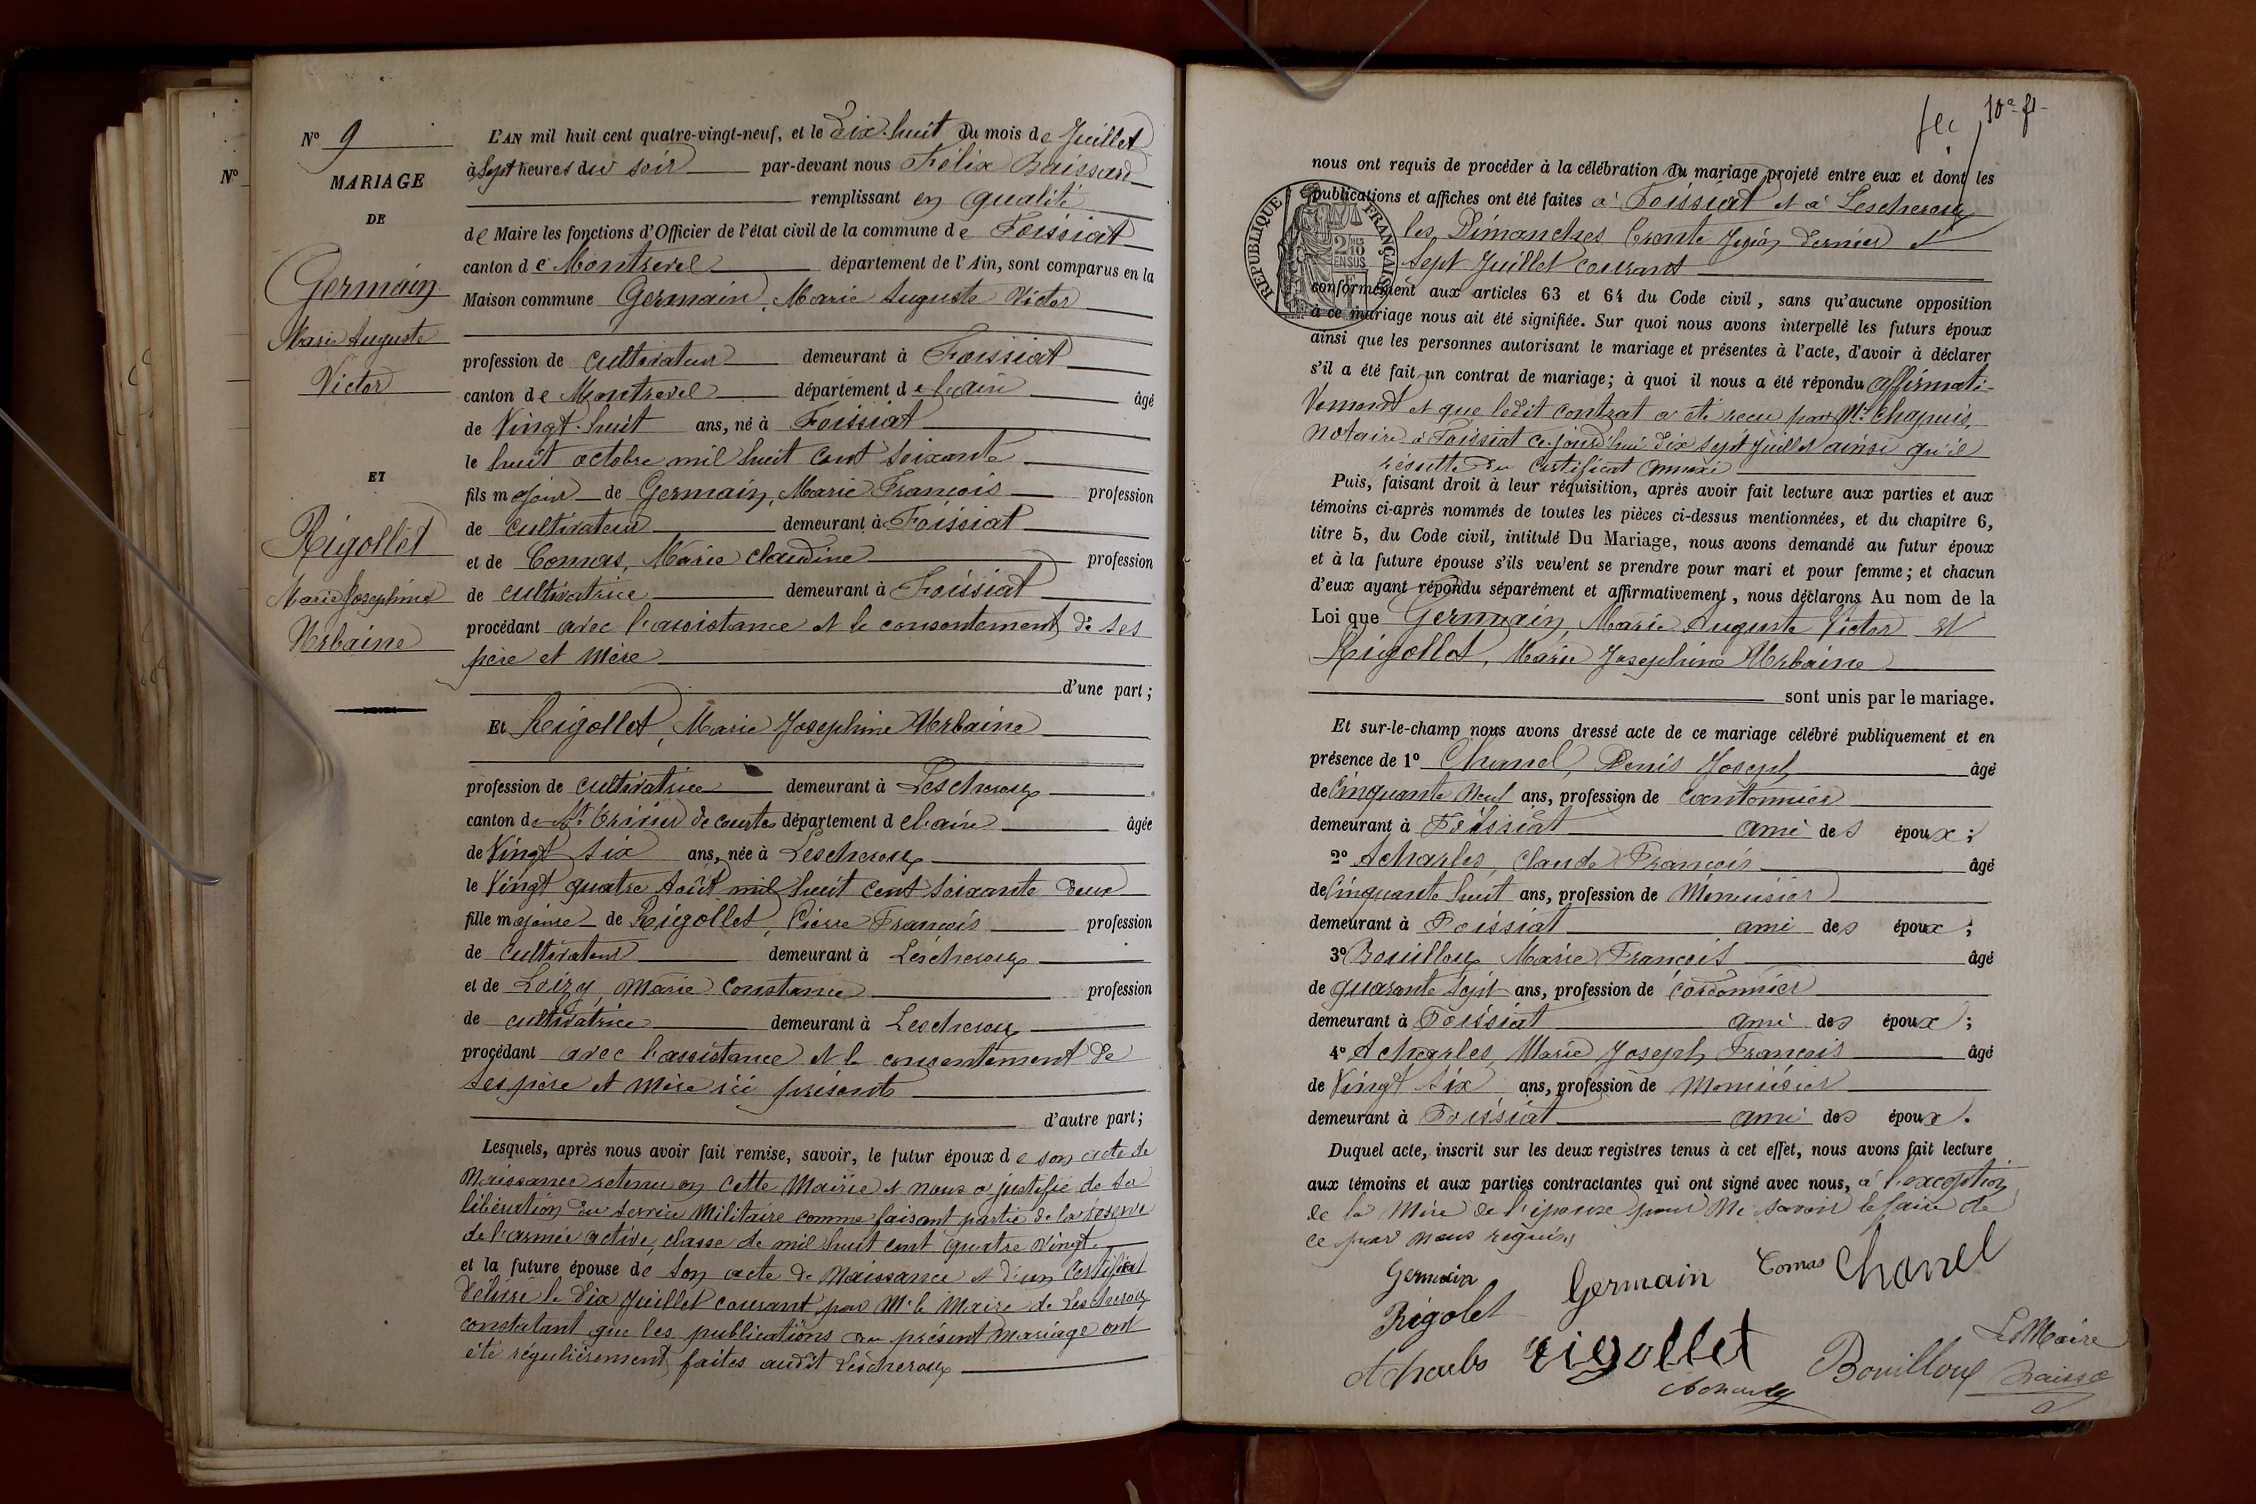 N° 9
MARIAGE
DE
Germain
Marie Auguste
Victor
ET
Rigollet
Marie Josephine
Urbaine
N°
L'AN mil huit cent quatre-vingt-neuf, et le Dix-huit du mois de Juillet
à Sept heures du soir par-devant nous Félix
remplissant en qualité
de Maire les fonctions d'Officier de l'état civil de la commune de Foissiat
canton de Montrevel département de l'Ain, sont comparus en la
Maison commune Germain, Marie Auguste Victor
profession de cultivateur demeurant à Foissiat
canton de Montrevel département de l'ain âgé
de Vingt-huit ans, né à Foissiat
le huit octobre mil huit cent soixante
fils majeur de Germain, Marie François profession
de cultivateur demeurant à Foissiat
et de Comas, Marie claudine profession
de cultivatrice demeurant à Foissiat
procédant avec l'assistance et le consentement de ses
père et mère
d'une part ;
Et Rigollet, Marie Josephine Urbaine
profession de cultivatrice demeurant à Lescheroux
canton de St Trivier de courtes département d el'ain âgée
de Vingt six ans, née à Lescheroux
le Vingt quatre Août mil huit cent soixante deux
fille majeure de Rigollet, Pierre François profession
de cultivateur demeurant à Lescheroux
et de Loizy, Marie Constance profession
de cultivatrice demeurant à Lescheroux
procédant avec l'assistance et le consentement de
ses père et mère ici présents
d'autre part ;
Lesquels, après nous avoir fait remise, savoir, le futur époux de son acte de
Naissance retenu en cette Mairie et nous a justifié de sa
libération du service Militaire comme faisant partie de la réserve
de l'armée active, classe de mil huit cent quatre vingt
et la future épouse de son acte de Naissance et d'un Certificat
Délivré le dix Juillet courant par Mr le Maire de Lescheroux
constatant que les publications du présent mariage ont
été régulièrement faites audit Lescheroux
10e f
nous ont requis de procéder à la célébration du mariage projeté entre eux et dont les
publications et affiches ont été faites à Foissiat et à Lescheroux
les Dimanches trente Juin dernier et
sept Juillet courant
REPUBLIQUE FRANÇAISE
2/10 EN SUS
conformément aux articles 63 et 64 du Code civil, sans qu'aucune opposition
à ce mariage nous ait été signifiée. Sur quoi nous avons interpellé les futurs époux
ainsi que les personnes autorisant le mariage et présentes à l'acte, d'avoir à déclarer
s'il a été fait un contrat de mariage; à quoi il nous a été répondu affirmati-
vement et que ledit contrat a été reçu par Me Chapuis,
notaire à Foissiat ce jourd'hui dix sept juillet ainsi qu'il
résulte du certificat annexé
Puis, faisant droit à leur réquisition, après avoir fait lecture aux parties et aux
témoins ci-après nommés de toutes les pièces ci-dessus mentionnées, et du chapitre 6,
titre 5, du Code civil, intitulé Du Mariage, nous avons demandé au futur époux
et à la future épouse s'ils veulent se prendre pour mari et pour femme; et chacun
d'eux ayant répondu séparément et affirmativement, nous déclarons Au nom de la
Loi que Germain, Marie Auguste Victor et
Rigollet, Marie Josephine Urbaine
sont unis par le mariage.
Et sur-le-champ nous avons dressé acte de ce mariage célébré publiquement et en
présence de 1° Chanel, Denis Joseph âgé
de Cinquante Neuf ans, profession de Cantonnier
demeurant à Foissiat ami des époux ;
2° Acharles, Claude François âgé
de Cinquante huit ans, profession de Menuisier
demeurant à Foissiat ami des époux ;
3° Bouilloux Marie François âgé
de quarante sept ans, profession de cordonnier
demeurant à Foissiat ami des époux ;
4° Acharles, Marie Joseph François âgé
de Vingt six ans, profession de Menuisier
demeurant à Foissiat ami des époux.
Duquel acte, inscrit sur les deux registres tenus à cet effet, nous avons fait lecture
aux témoins et aux parties contractantes qui ont signé avec nous, à l'exception
de la Mère de l'épouse pour ne savoir le faire de
ce par nous requis
Germain Germain Comas Chanel
Rigolet
Le Maire
Acharles rigollet Bouilloux